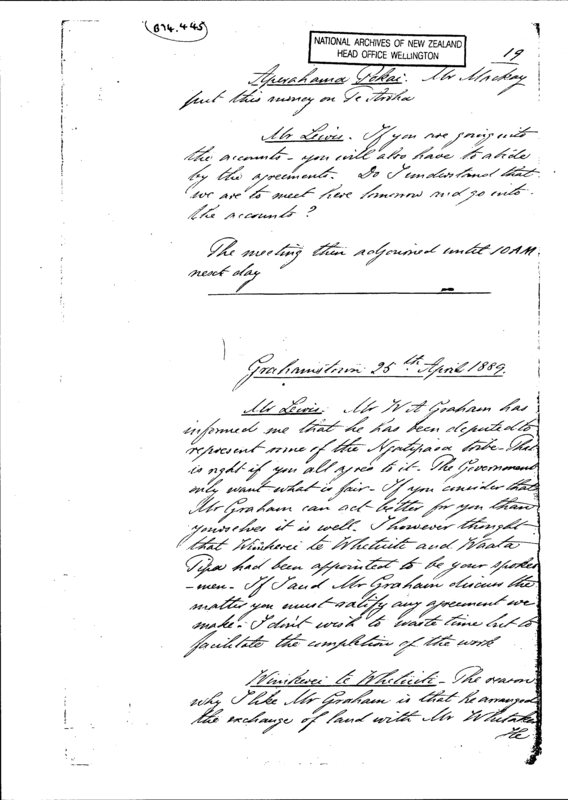 (B74.445)
NATIONAL ARCHIVES OF NEW ZEALAND
HEAD OFFICE WELLINGTON
19
Aperahama Pokai. Mr Mackay
put this money on Te Aroha
Mr Lewis. If you are going into
the accounts - you will also have to abide
by the agreements. Do I understand that
we are to meet here tomorrow and go into
the accounts?
The meeting then adjourned until 10 AM.
next day
Grahamstown 25th April 1889.
Mr Lewis. Mr W A Graham has
informed me that he has been deputed to
represent some of the Ngatipaoa tribe - That
is right if you all agree to it - The Government
only want what is fair - If you consider that
Mr Graham can act better for you than
yourselves it is well. I however thought
that Winkerei te Whetuite and Waata
Tipa had been appointed to be your spokes
-men - If I and Mr Graham discuss the
matter you must ratify any agreement we
make - I don't wish to waste time but to
facilitate the completion of the work
Winkerei te Whetuite - The reason
why I like Mr Graham is that he arranged
the exchange of land with Mr Whitaker
He